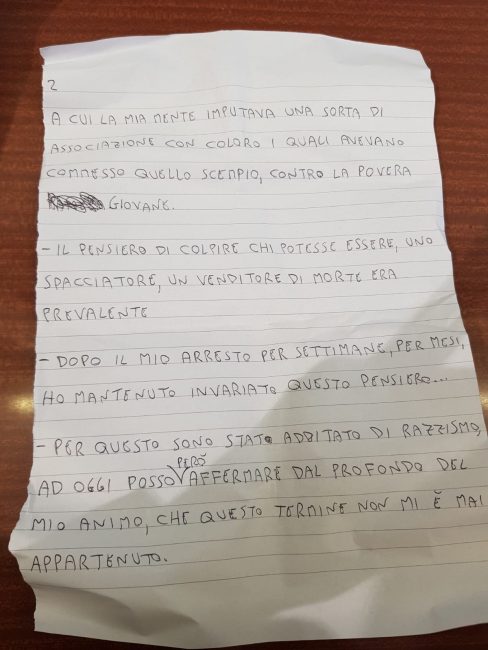 2
A CUI LA MIA MENTE IMPUTAVA UNA SORTA DI
ASSOCIAZIONE CON COLORO I QUALI AVEVANO
COMMESSO QUELLO SCEMPIO, CONTRO LA POVERA
GIOVANE.
- IL PENSIERO DI COLPIRE CHI POTESSE ESSERE, UNO
SPACCIATORE, UN VENDITORE DI MORTE ERA
PREVALENTE
- DOPO IL MIO ARRESTO PER SETTIMANE, PER MESI,
HO MANTENUTO INVARIATO QUESTO PENSIERO...
- PER QUESTO SONO STATO ADDITATO DI RAZZISMO,
AD OGGI POSSO PERÒ AFFERMARE DAL PROFONDO DEL
MIO ANIMO, CHE QUESTO TERMINE NON MI È MAI
APPARTENUTO.